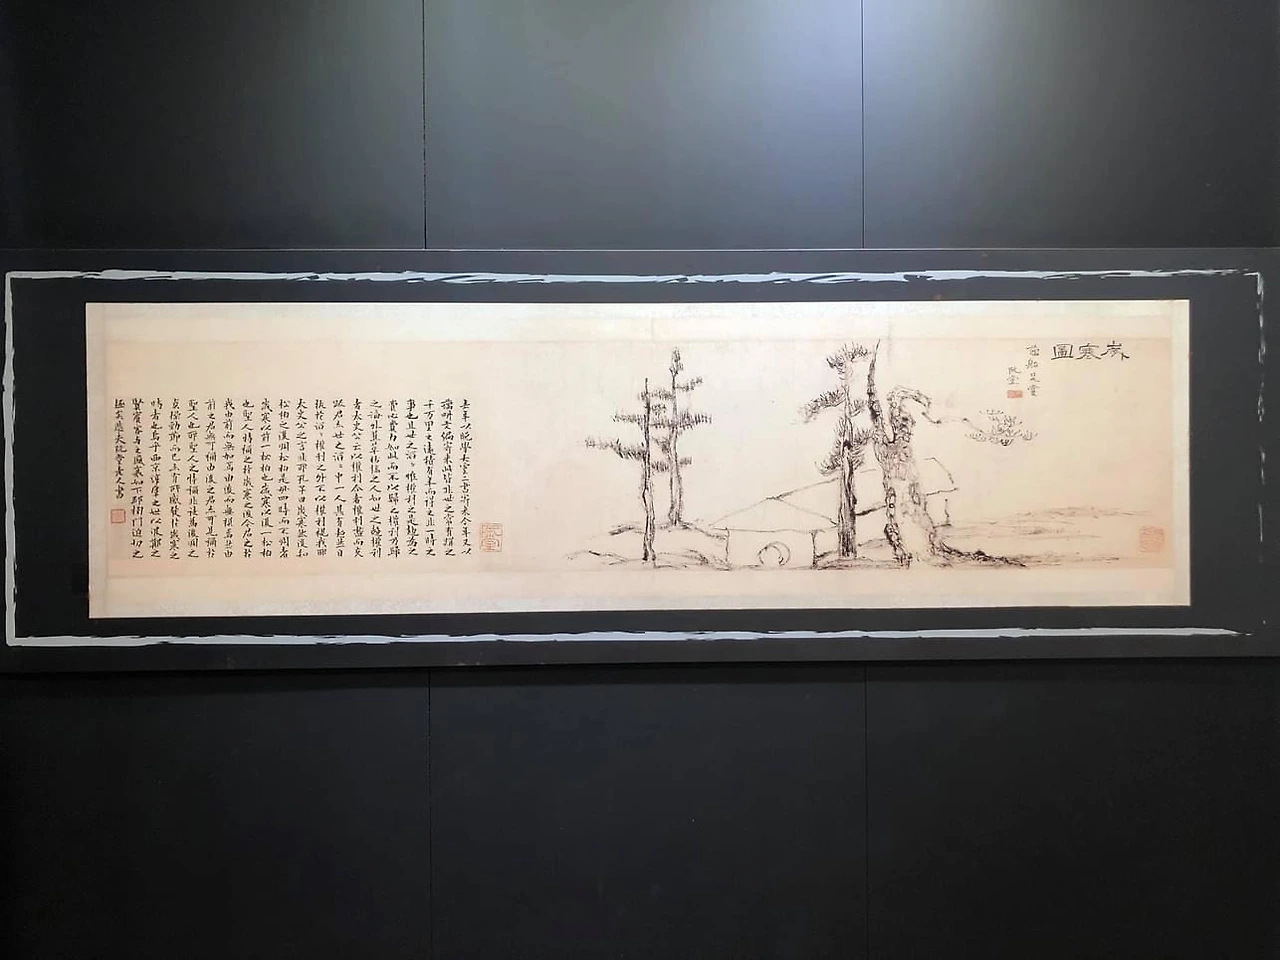 歲寒圖
藕船是賞
阮堂
去年以晚學大雲二書寄來今年又以
藕耕文編寄來此皆非世之常有購之
千万里之遠積有年而得之非一時之
事也且世之滔〃惟權利之是趨爲之
費心費力如此而不以歸之權利乃歸
之海外蕉萃枯槁之人如世之趨權利
者太史公云以權利合者權利盡而交
疎君亦世之滔〃中一人其有超然自
拔於滔〃權利之外不以權利視我耶
太史公之言非耶孔子曰歲寒然後知
松栢之後凋松栢是毌四時而不凋者
歲寒以前一松栢也歲寒以後一松栢
也聖人特稱之於歲寒之後今君之於
我由前而無加焉由後而無損焉然由
前之君無可稱由後之君亦可見稱於
聖人也耶聖人之特稱非徒爲後凋之
貞操勁節而已亦有所感發於歲寒之
時者也烏乎西京淳厚之世以汲鄭之
賢賓客與之盛衰如下邳榜門迫切之
極矣悲夫阮堂老人書
阮堂